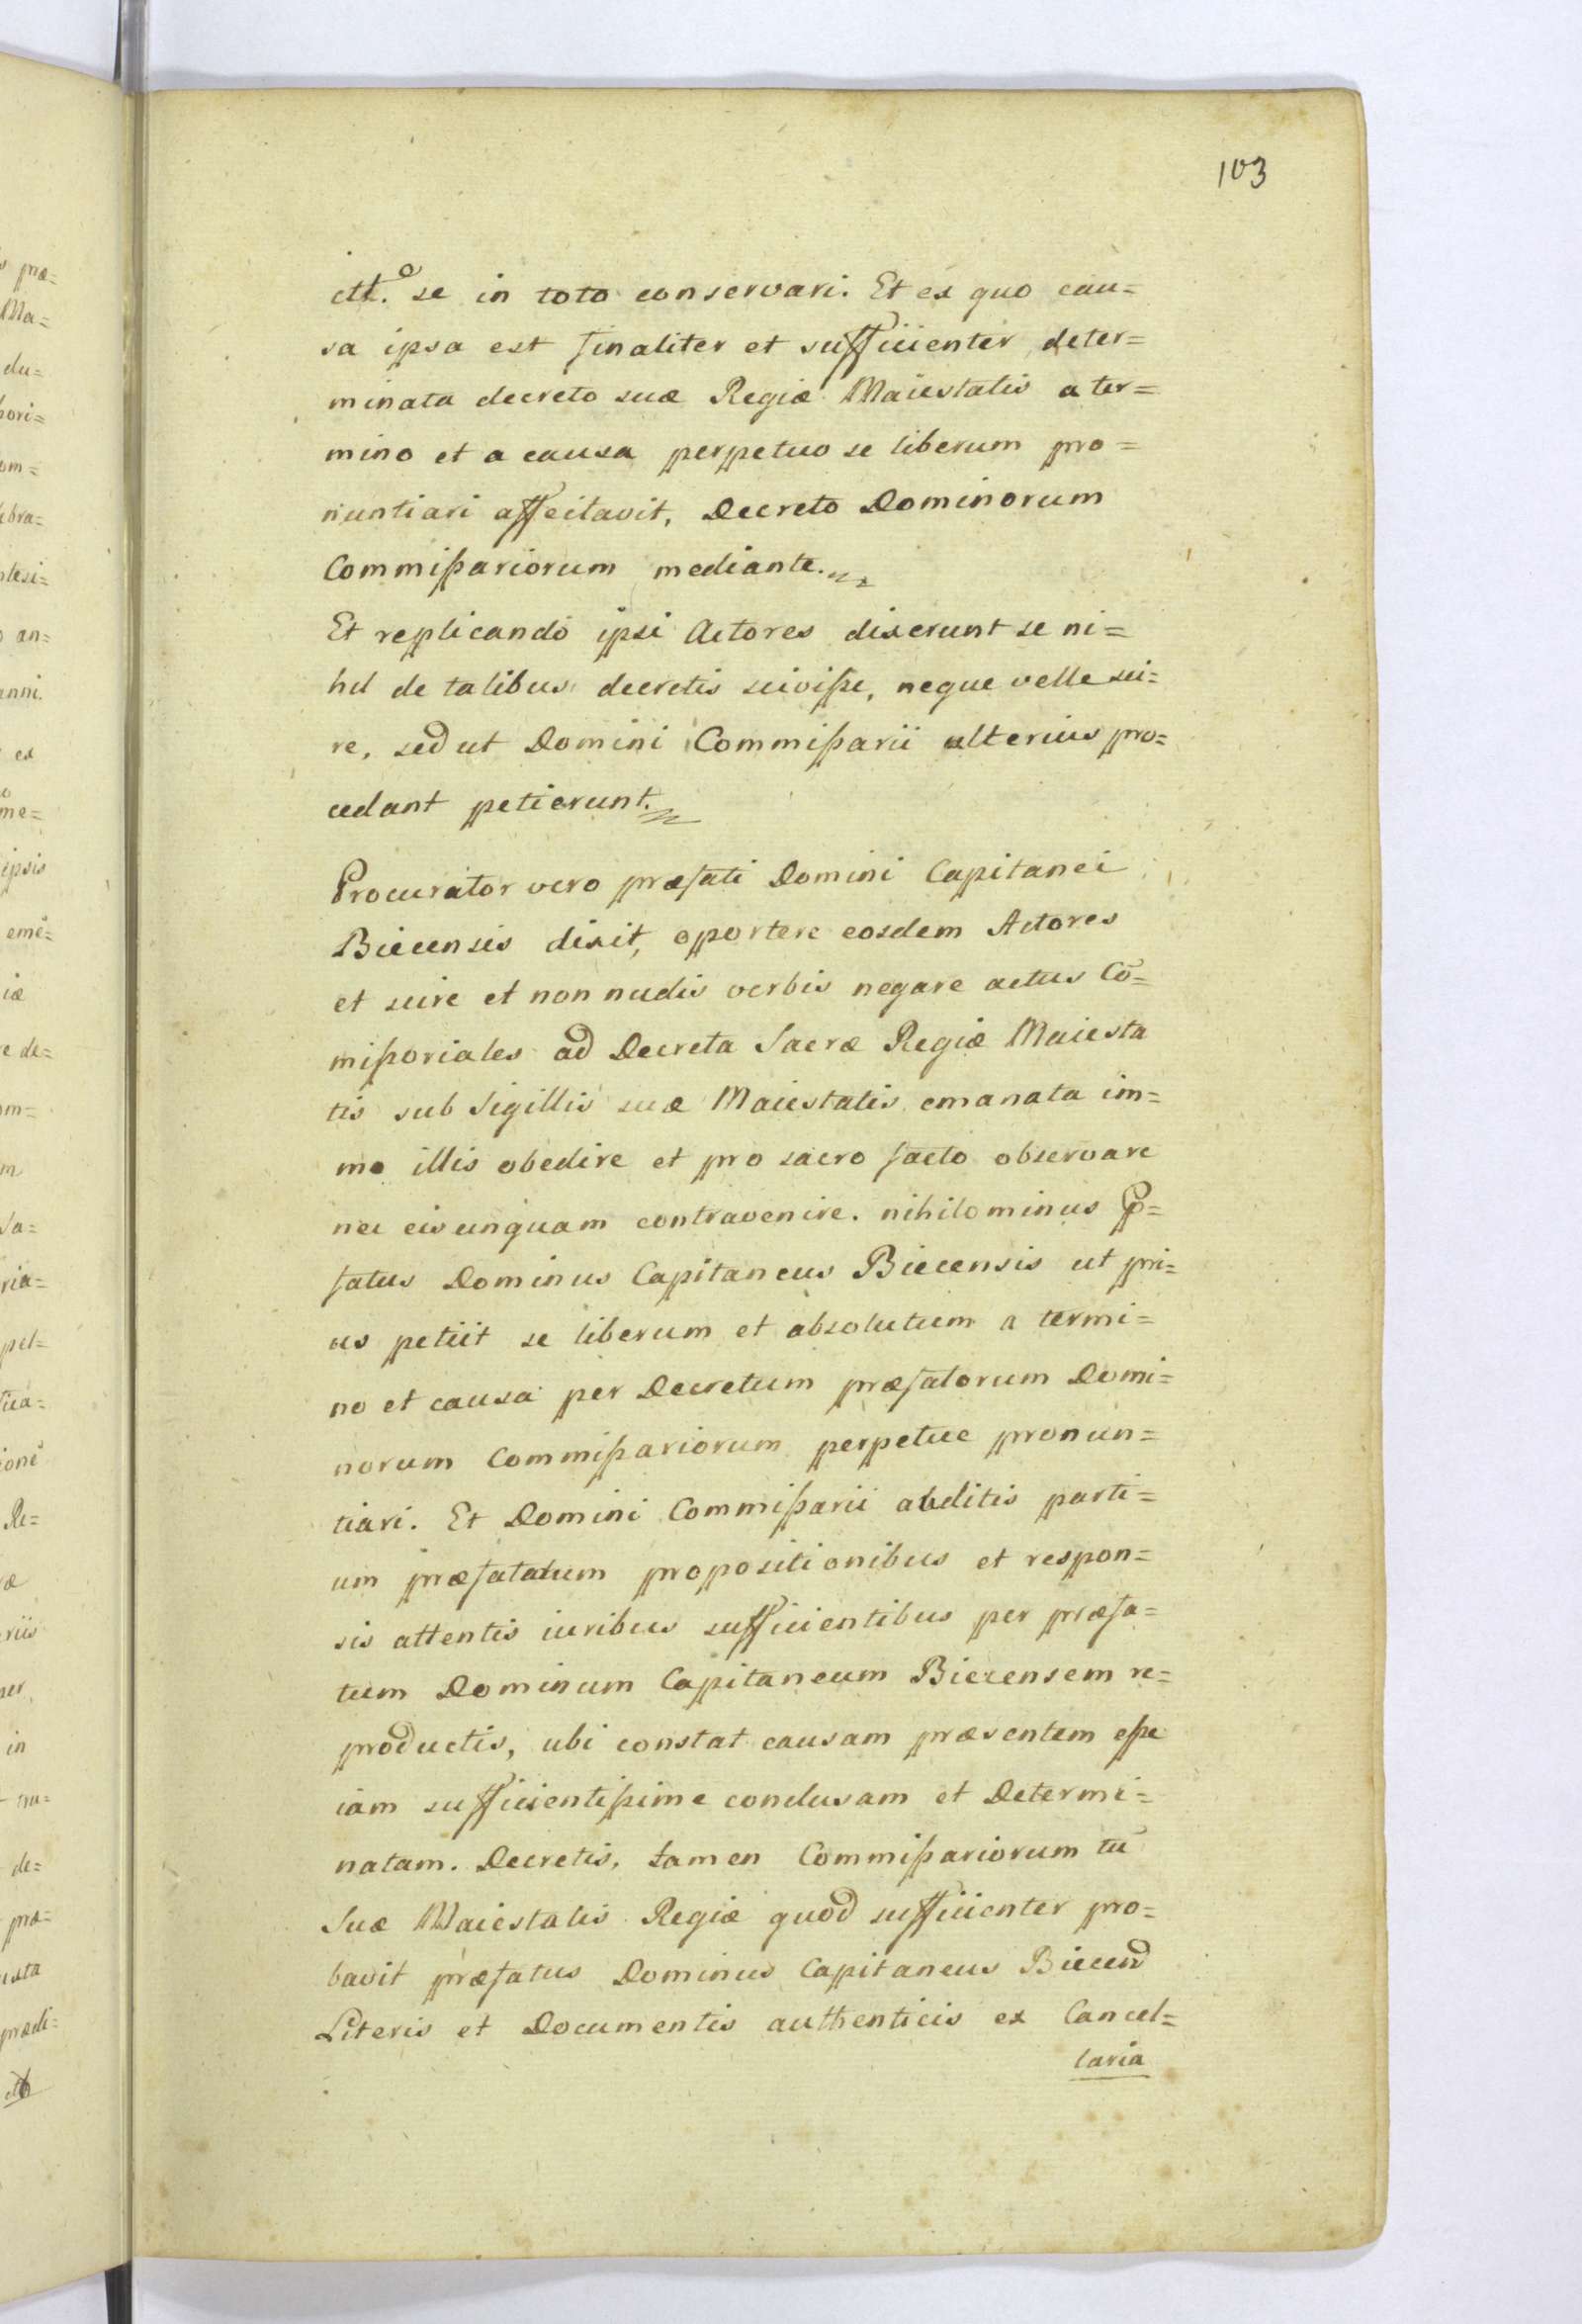 103
se in toto conservari. Et ex quo cau=
sa ipsa est finaliter et sufficienter deter=
minata decreto suæ Regiæ Maiestatis a ter=
mino et a causa perpetuo se liberum pro=
nuntiari affectavit, Decreto Dominorum
Commißariorum mediante.
Et replicando ipsi Actores dixerunt se ni=
hil de talibus decretis scivißse, neque velle sci=
re, sed ut Domini Commißarii ulterius pro=
cedant petierunt.
Procurator vero præfati Domini Capitanei
Biecensis dixit, oportere eosdem Actores
et scire et non nudis verbis negare actus Co̅=
mißoriales ad Decreta Sacræ Regiæ Maiesta
tis sub Sigillis suæ Maiestatis emanata im=
mo illis obedire et pro sacro facto observare
nec eis unquam contravenire. nihilominus P=
fatus Dominus Capitaneus Biecensis ut pri=
us petiit se liberum et absolutum a termi=
no et causa per Decretum præfatorum Domi=
norum Commißariorum perpetue pronun=
tiari. Et Domini Commißarii auditis parti=
um præfatatum propositionibus et respon=
sis attentis iuribus sufficientibus per præfa=
tum Dominum Capitaneum Biecensem re=
productis, ubi constat causam præsentem eße
iam sufficientißime conclusam et Determi=
natam. Decretis, tamen Commißariorum tu̅
Suæ Maiestatis Regiæ quod sufficienter pro=
bavit præfatus Dominus Capitaneus Biecen
Literis et Documentis authenticis ex Cancel=
laria